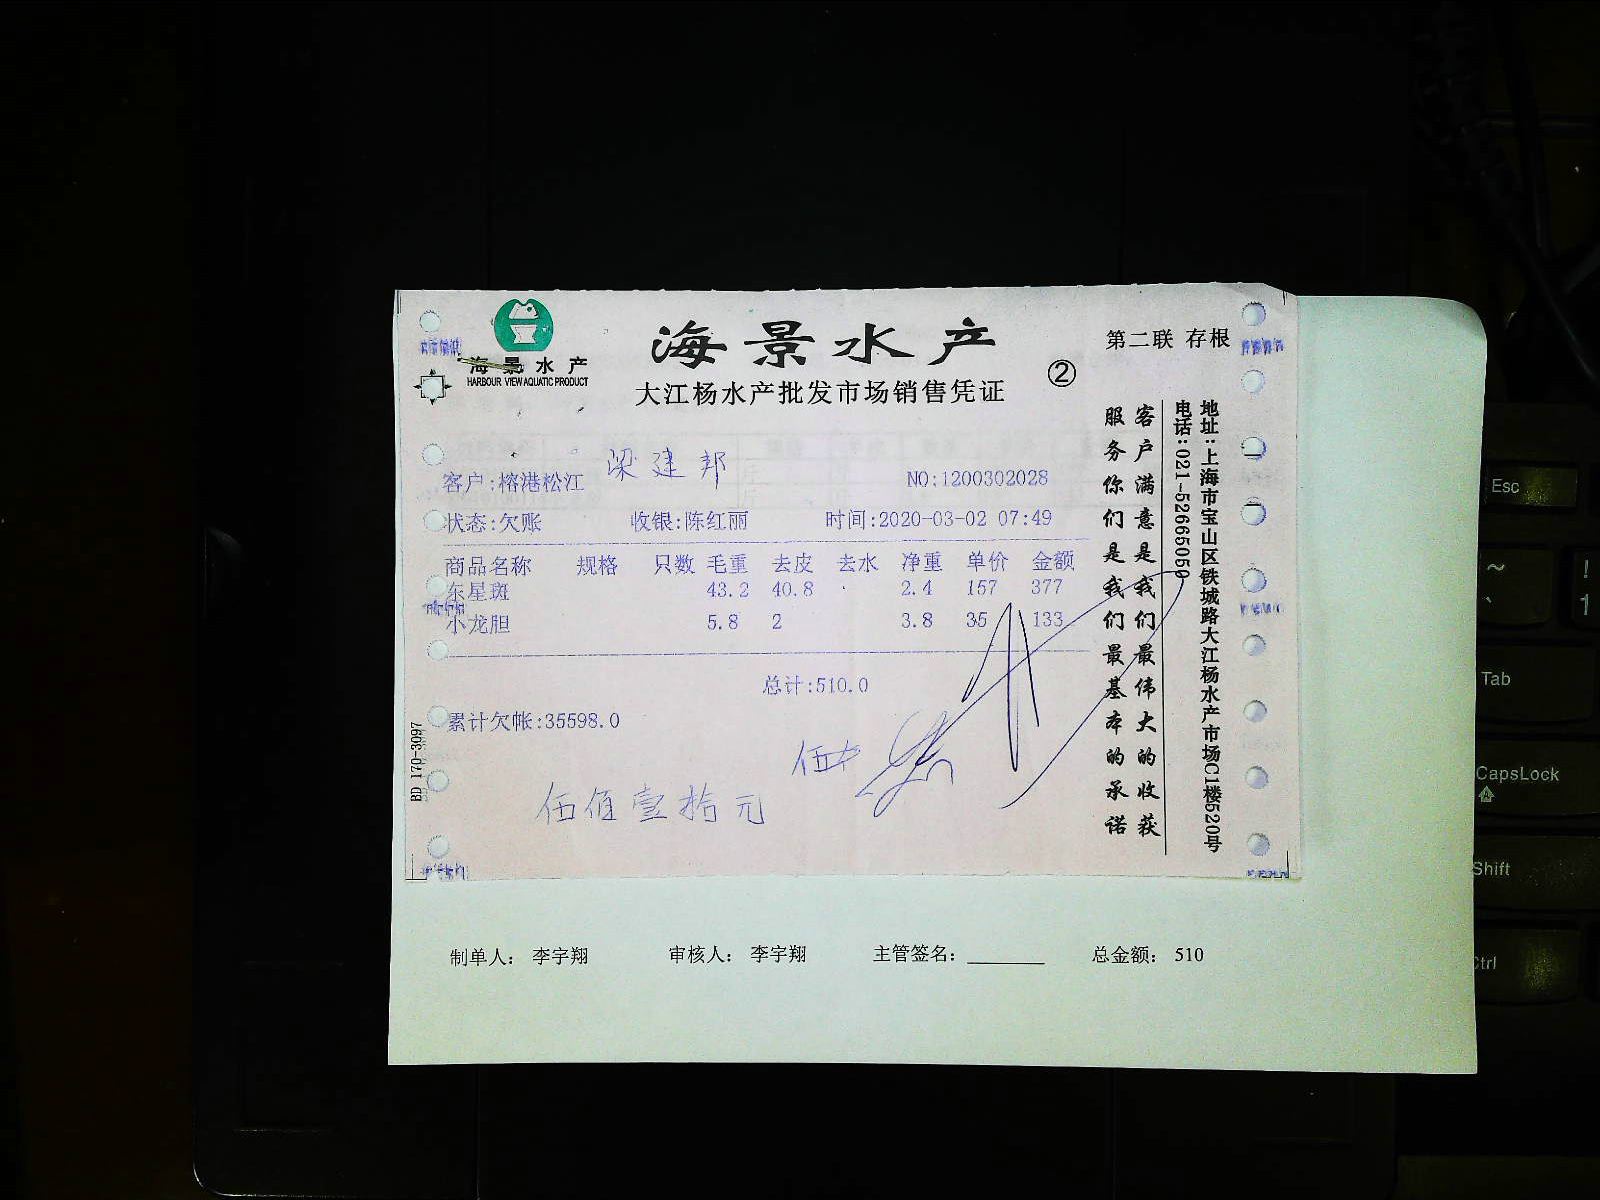 海景水产
HARBOUR VIEW AQUATIC PRODUCT
海景水产
大江杨水产批发市场销售凭证
②
第二联 存根
客户:榕港松江 梁建邦 NO:1200302028
状态:欠账 收银:陈红丽 时间:2020-03-02 07:49
商品名称 规格 只数 毛重 去皮 去水 净重 单价 金额
东星斑 43.2 40.8 2.4 157 377
小龙胆 5.8 2 3.8 35 133
总计:510.0
累计欠帐:35598.0
伍佰壹拾元
客户满意是我们最伟大的收获
服务你们是我们最基本的承诺
地址:上海市宝山区铁城路大江杨水产市场C1楼520号
电话:021-52665050
BD 170-3097
制单人: 李宇翔 审核人: 李宇翔 主管签名: 总金额: 510
Esc
~
!
1
Tab
CapsLock
Shift
Ctrl